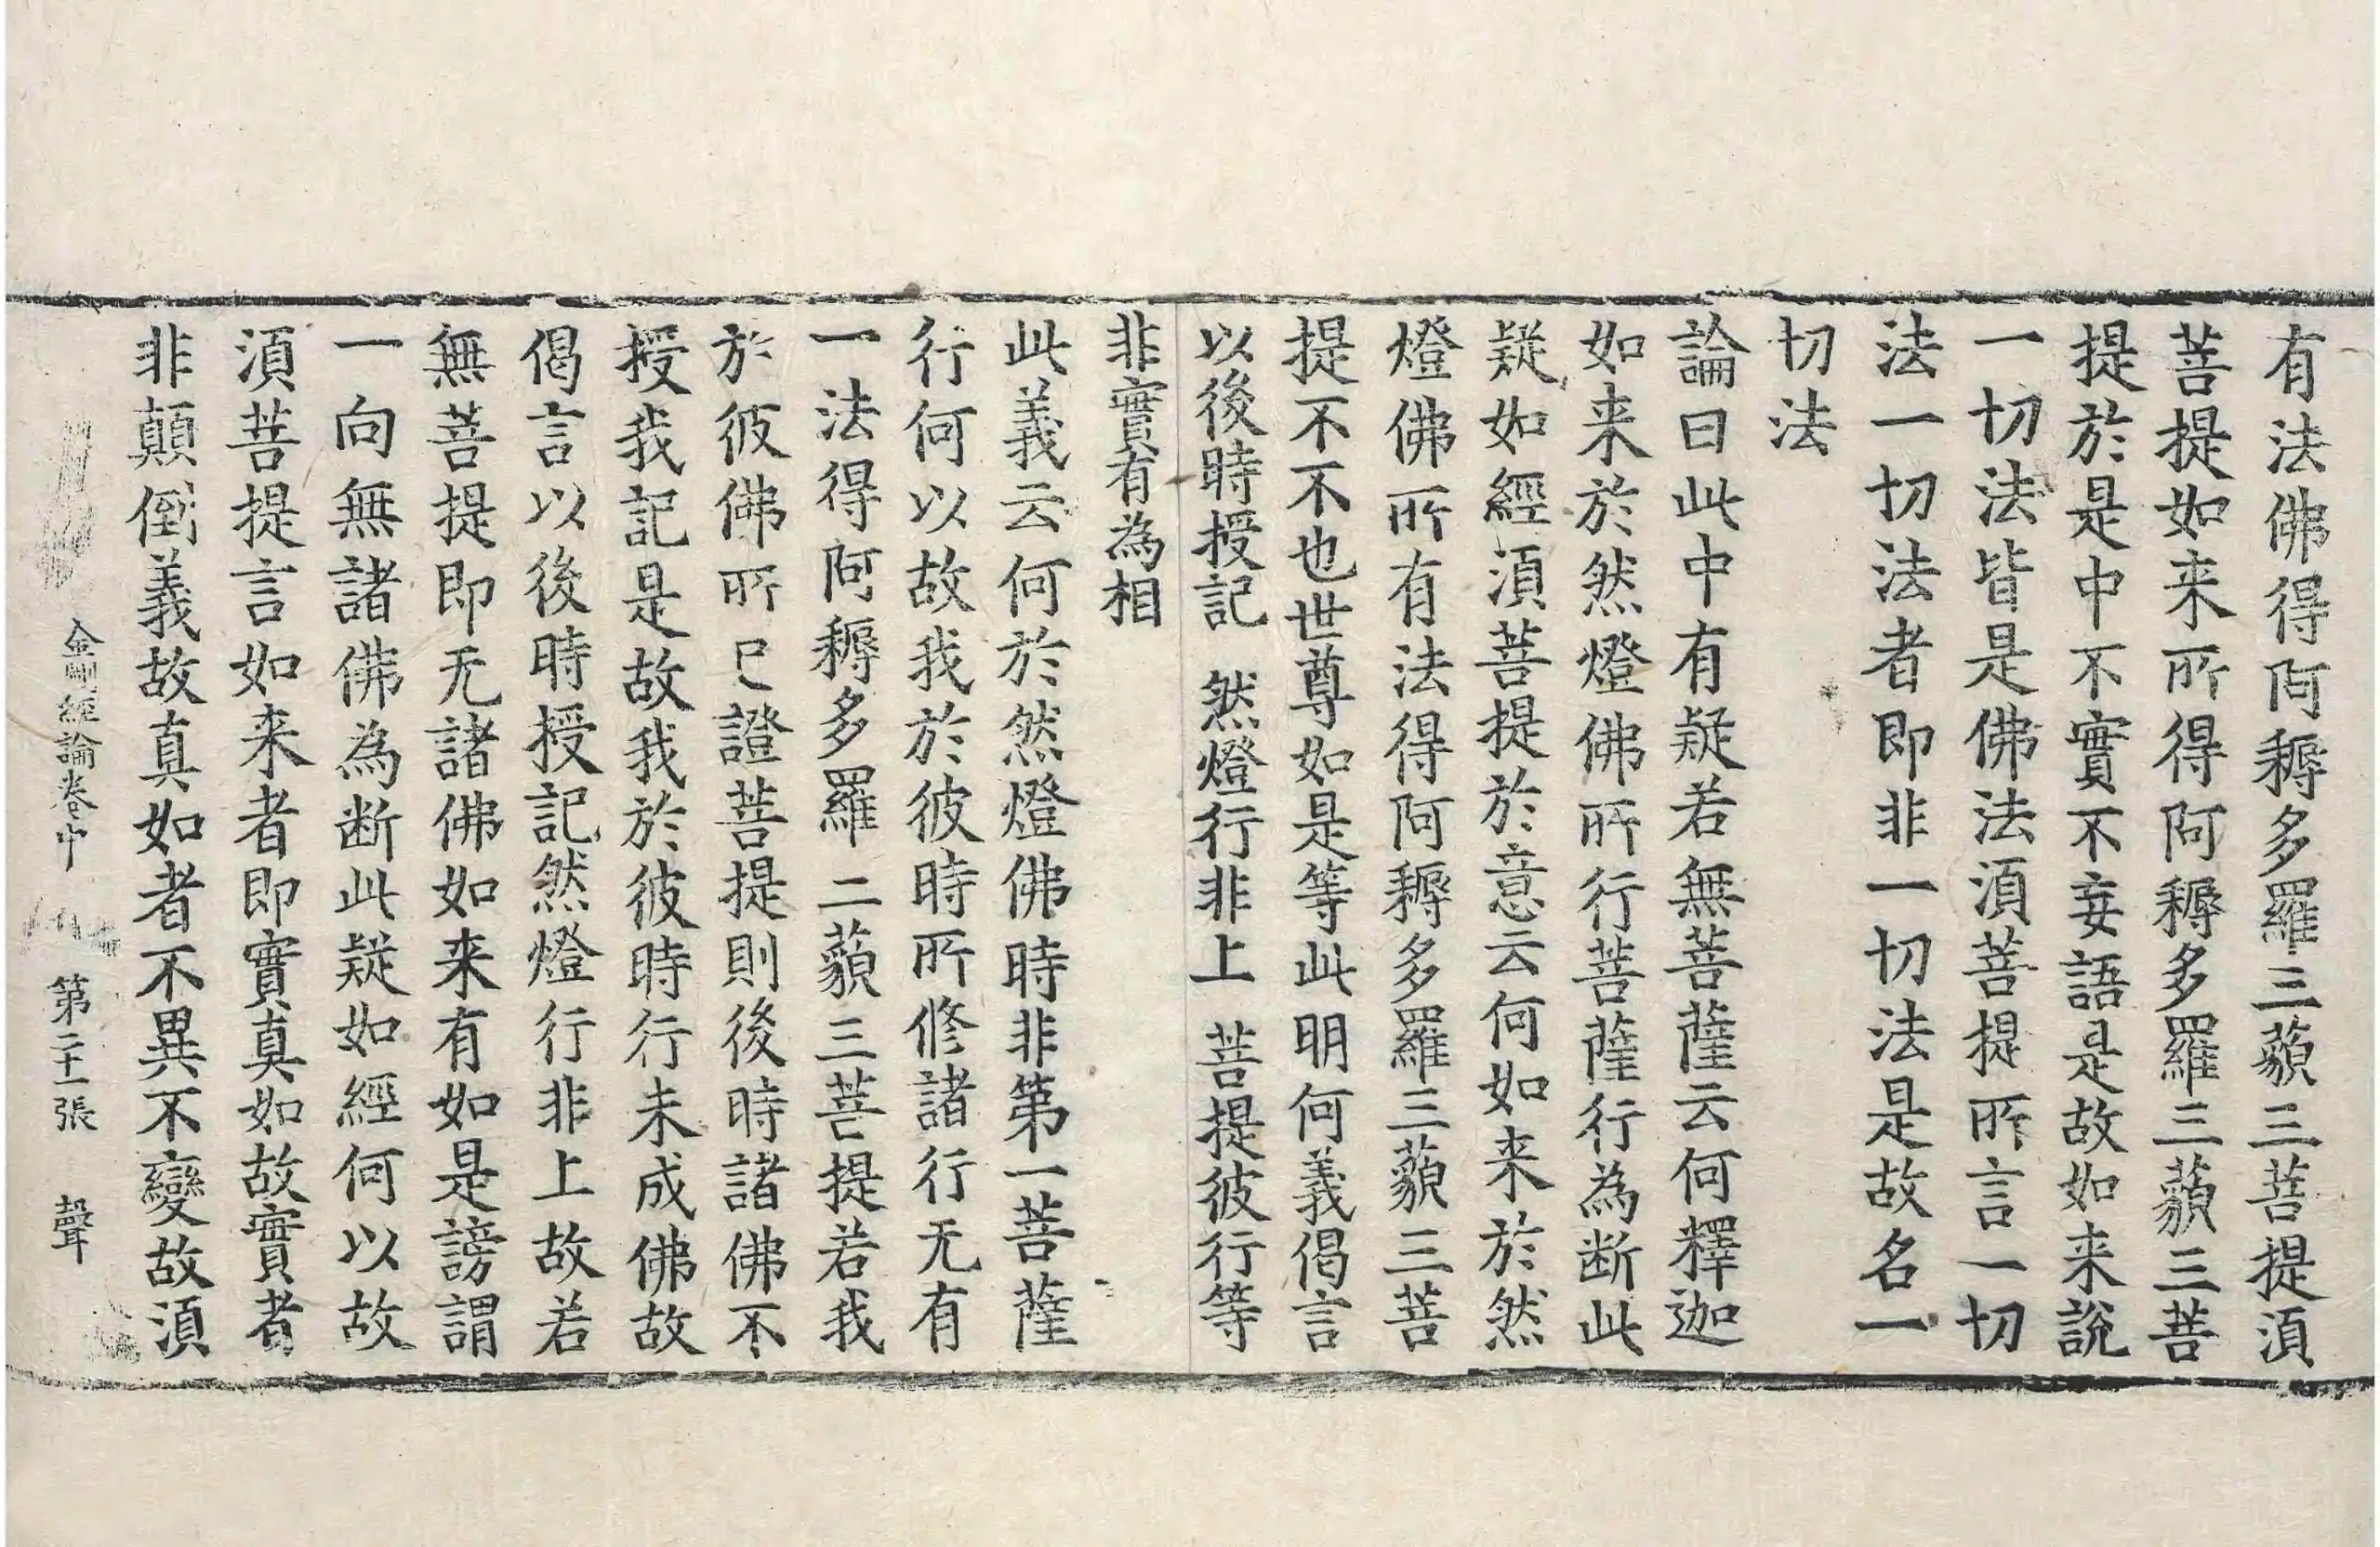 有法佛得阿耨多羅三藐三菩提湏
菩提如来所得阿耨多羅三藐三菩
提於是中不實不妄語是故如来說
一切法皆是佛法湏菩提所言一切
法一切法者即非一切法是故名一
切法
論曰此中有疑若無菩薩云何釋迦
如来於然燈佛所行菩薩行為断此
疑如經湏菩提於意云何如来於然
燈佛所有法得阿耨多羅三藐三菩
提不不也世尊如是等此明何義偈言
以後時授記　然燈行非上　菩提彼行等
非實有為相
此義云何於然燈佛時非第一菩薩
行何以故我於彼時所修諸行无有
一法得阿耨多羅三藐三菩提若我
於彼佛所已證菩提則後時諸佛不
授我記是故我於彼時行未成佛故
偈言以後時授記然燈行非上故若
無菩提即无諸佛如来有如是謗謂
一向無諸佛為断此疑如經何以故
湏菩提言如来者即實真如故實者
非顛倒義故真如者不異不變故湏
金剛經論卷中　第二十一張　聲